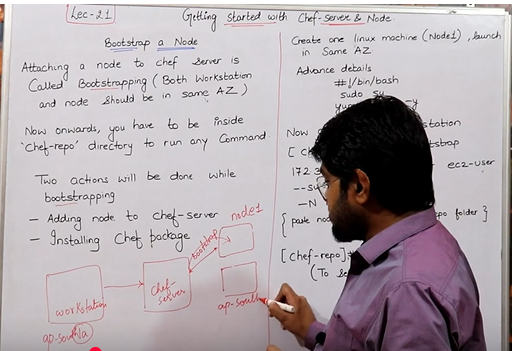 Lec-21
Getting started with Chef-server & Node
Bootstrap a Node
Attaching a node to chef server is
Called Bootstrapping (Both Workstation
and node should be in same AZ)
Now onwards, you have to be inside
'chef-repo' directory to run any Command.
Two actions will be done while
bootstrapping
- Adding node to chef-server
- Installing Chef package
workstation
ap-south1a
chef-
server
bootstrap
node1
ap-south
Create one linux machine (Node1), launch
in Same AZ
Advance details
#!/bin/bash
sudo su
-y
Now
[
172.3
ec2-user
--su
-N
{ paste
folder }
[chef-repo]
(To